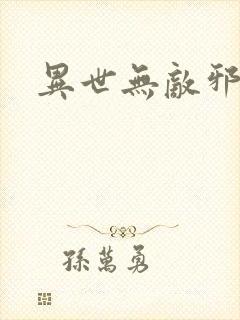 異世無敵邪
孫萬勇